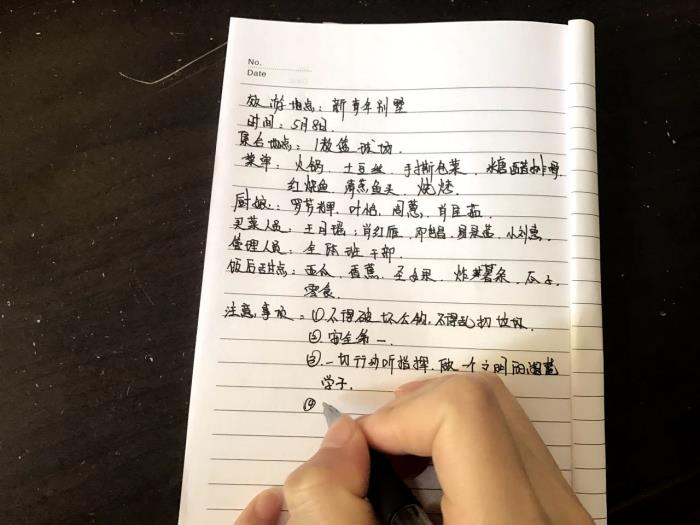 No.
Date
旅游地点：新青年别墅
时间：5月8日.
集合地点：1教篮球场
菜单：火锅、土豆丝、手撕包菜、糖醋排骨、
红烧鱼、清蒸鱼头、烧烤.
厨娘：罗芳辉、叶怡、周蕙、肖
买菜人员：王月瑶；肖红雁、邓 小刘惠.
管理人员：全体班干部.
饭后甜点：西瓜、香蕉、圣女果、炸薯条、瓜子、
零食.
注意事项：①不得破坏公物，不得乱扔垃圾.
②安全第一.
③一切行动听指挥，做一个文明的湘范
学子.
④